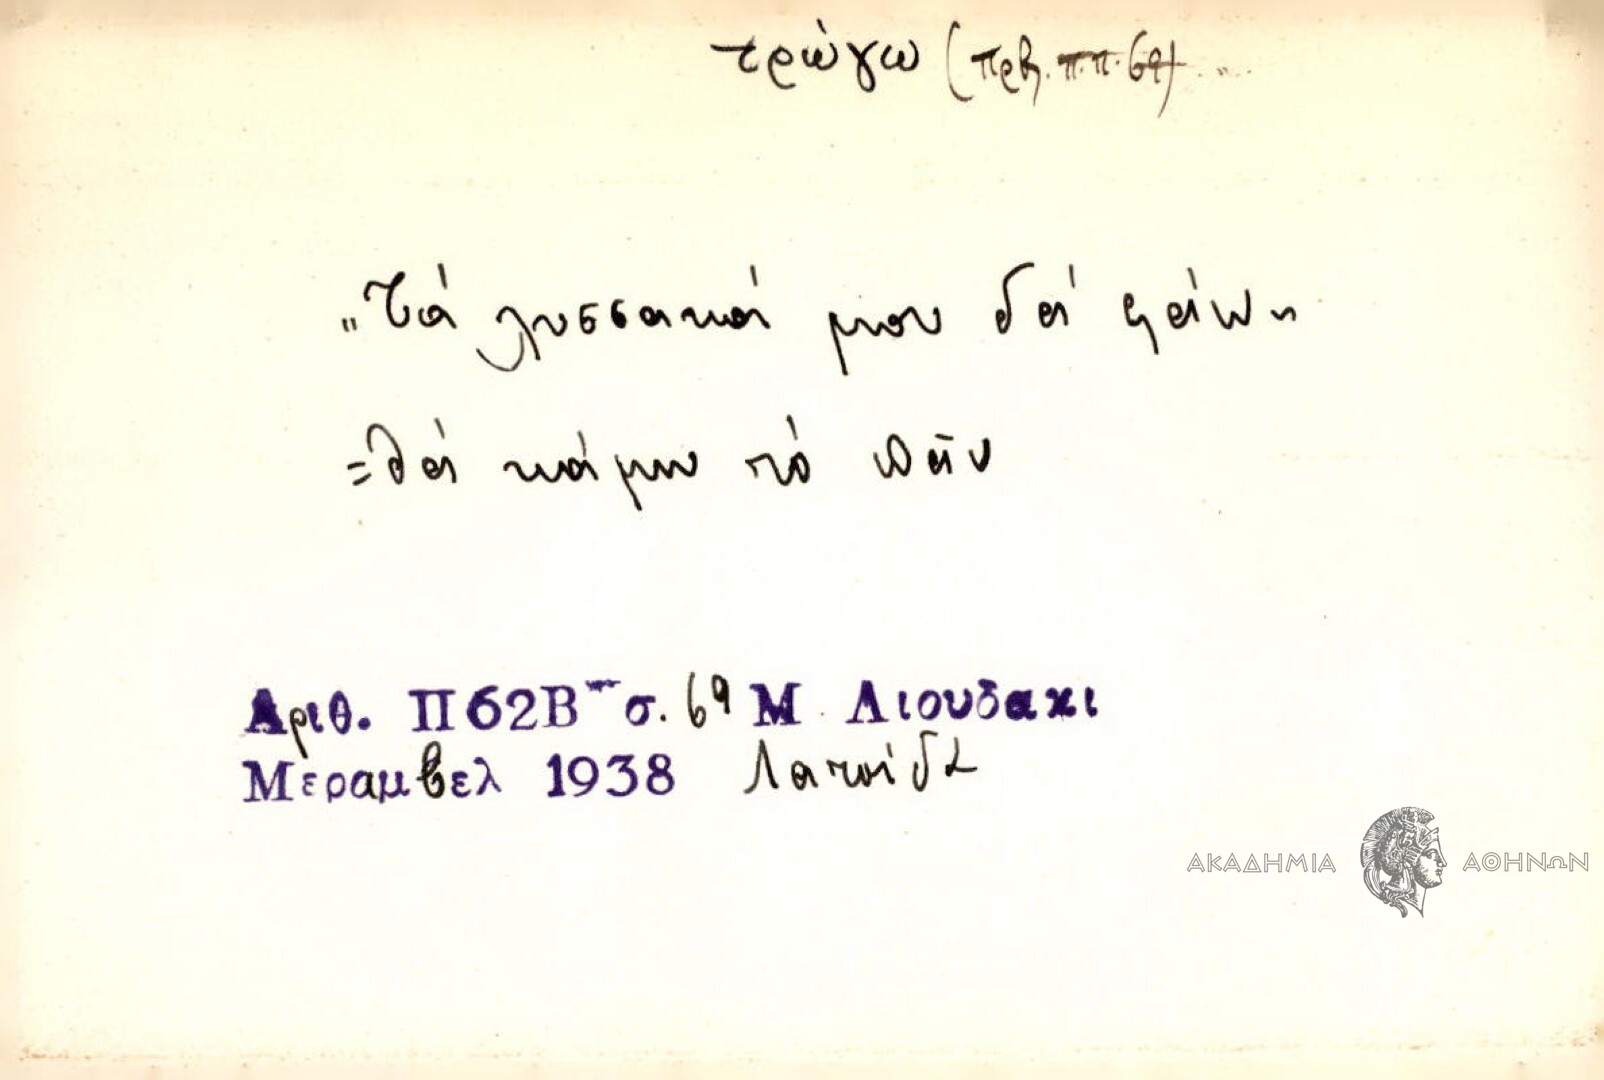 τρώγω (πρβ. π.π. 69)
„Τὰ λυσσακά μου θὰ φάω"
=θὰ κάμω τὸ πᾶν
Αριθ. Π62Β σ. 69 Μ. Λιουδακι
Μεραμβελ 1938 Λατσίδα
ΑΚΑΔΗΜΙΑ ΑΘΗΝΩΝ